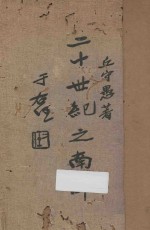 丘守愚著
二十世紀之南
于右任